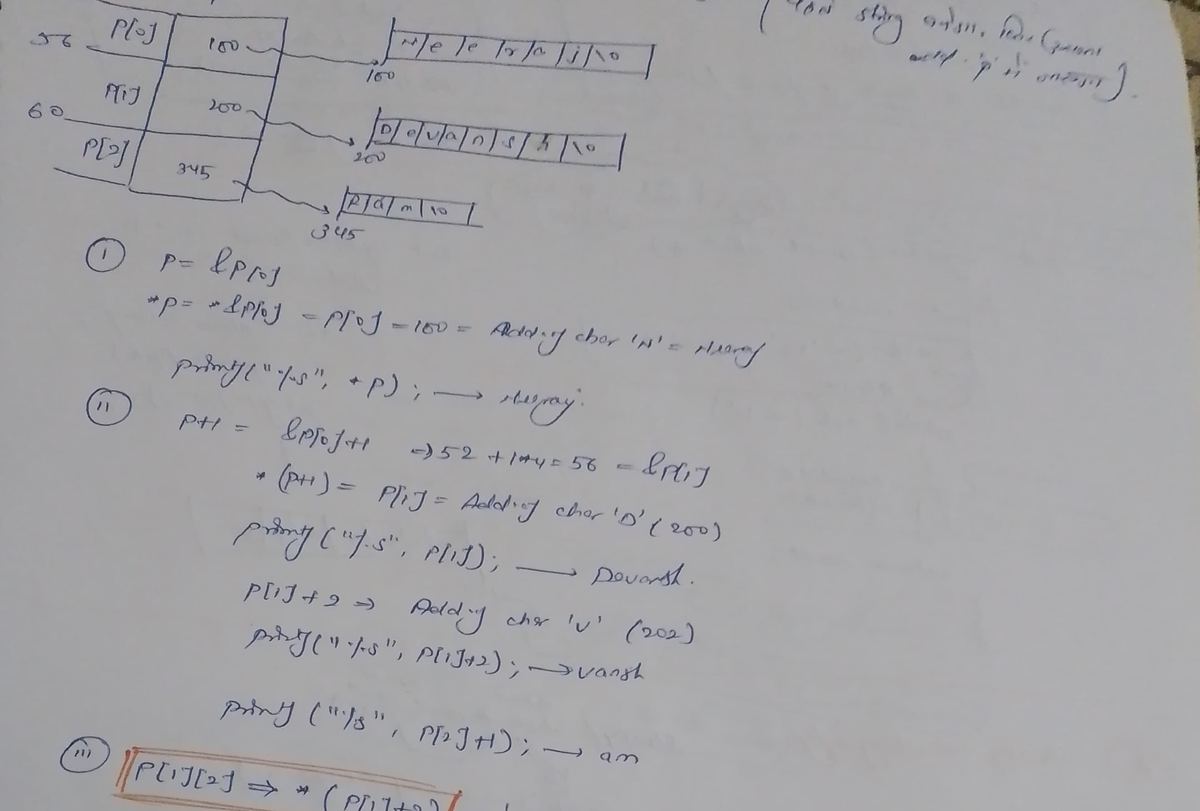 56
P[0]
100
N e e r a j \0
100
60
P[1]
200
D e v a n s h \0
200
P[2]
345
R a m \0
345
i
P = &P[0]
*P = *&P[0] = P[0] = 100 = Add. of char 'N' = Neeraj
printf("%s", *P); → Neeraj.
ii
P+1 = &P[0]+1 ⇒ 52 + 1*4 = 56 = &P[1]
*(P+1) = P[1] = Add. of char 'D' (200)
printf("%s", P[1]); → Devansh.
P[1]+2 ⇒ Add. of char 'v' (202)
printf("%s", P[1]+2); → vansh
printf("%s", P[2]+1); → am
iii
P[1][2] ⇒ *(P[1]+2)